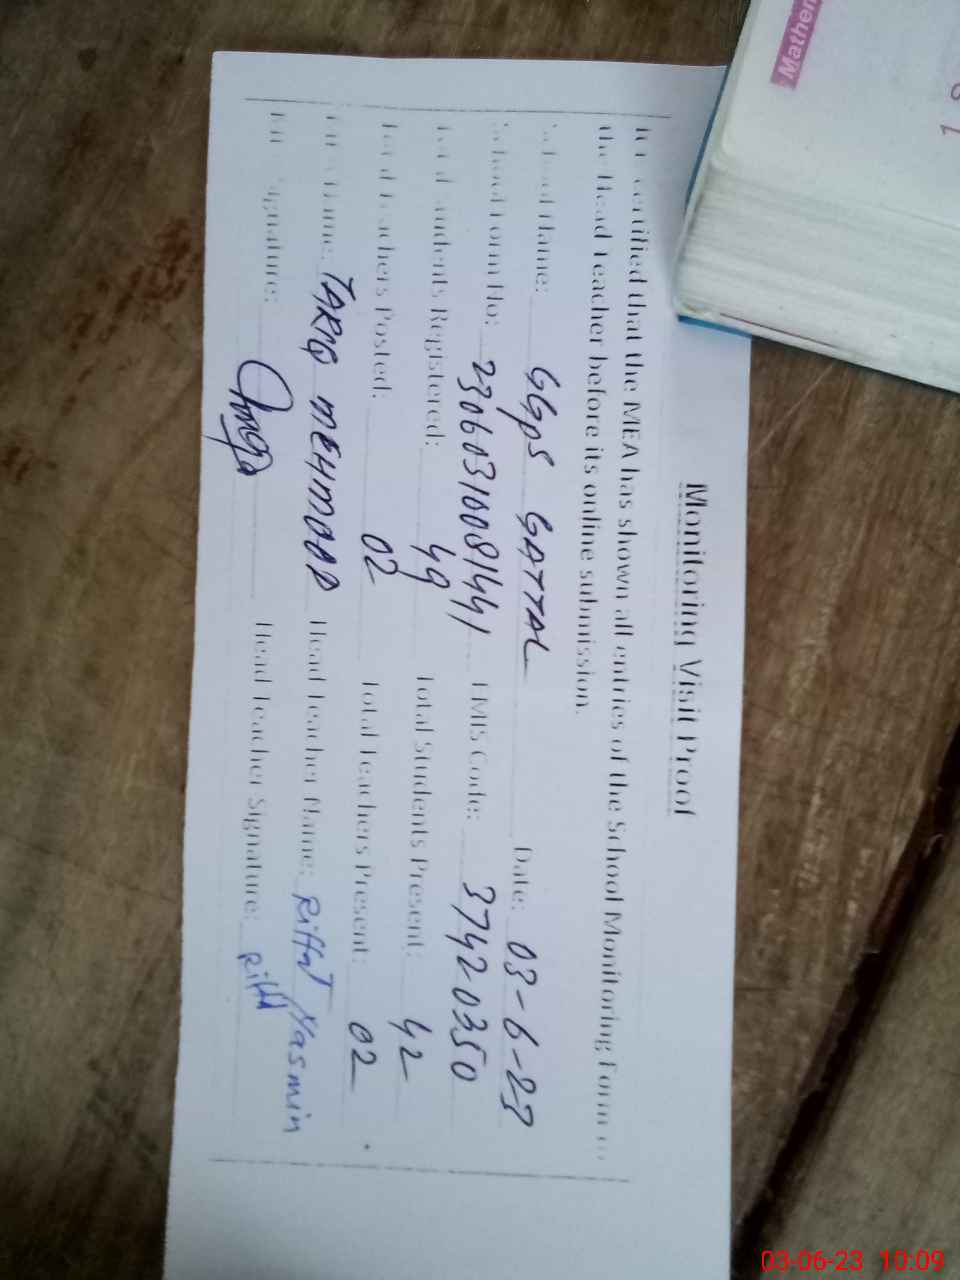 Monitoring Visit Proof
It is certified that the MEA has shown all entries of the School Monitoring Form to
the Head Teacher before its online submission.
School Name: GGPS GATTAL Date: 03-6-23
School Form No: 23060310081441 EMIS Code: 37420350
Total Students Registered: 49 Total Students Present: 42
Total Teachers Posted: 02 Total Teachers Present: 02
Name: TARIQ MEHMOOD Head Teacher Name: Riffat Yasmin
Signature: Head Teacher Signature:
Mathem
03-06-23 10:09